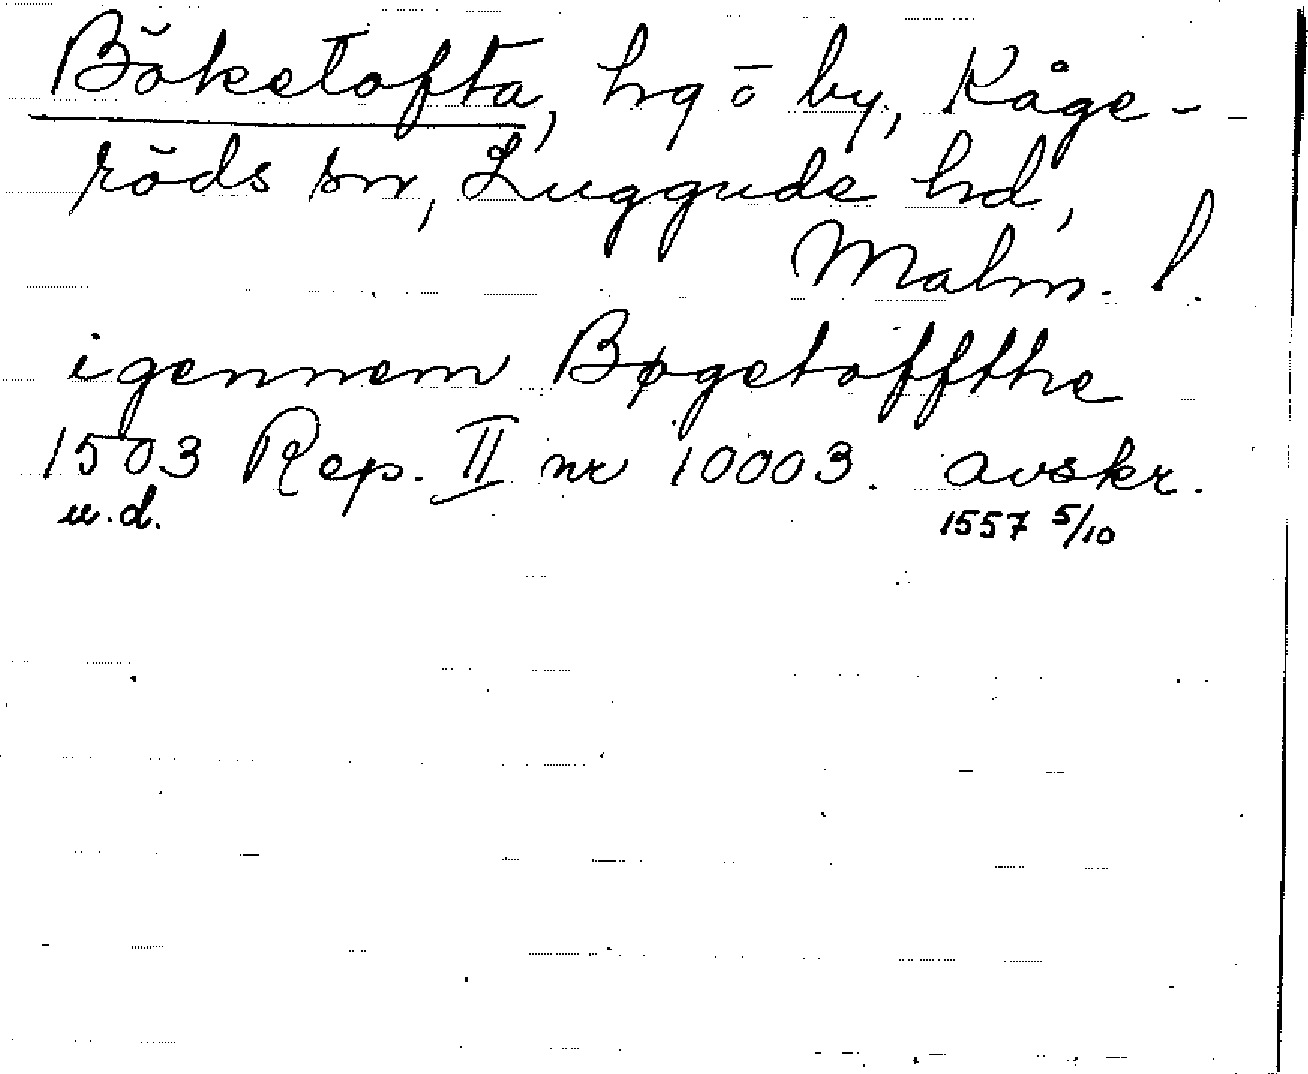 Böketofta, hg o by, Kåge-
röds sn, Luggude hd,
Malm. l.
igennem Bøgetoffthe
1503 Rep. II nr 10003. avskr.
u.d. 1557 5/10